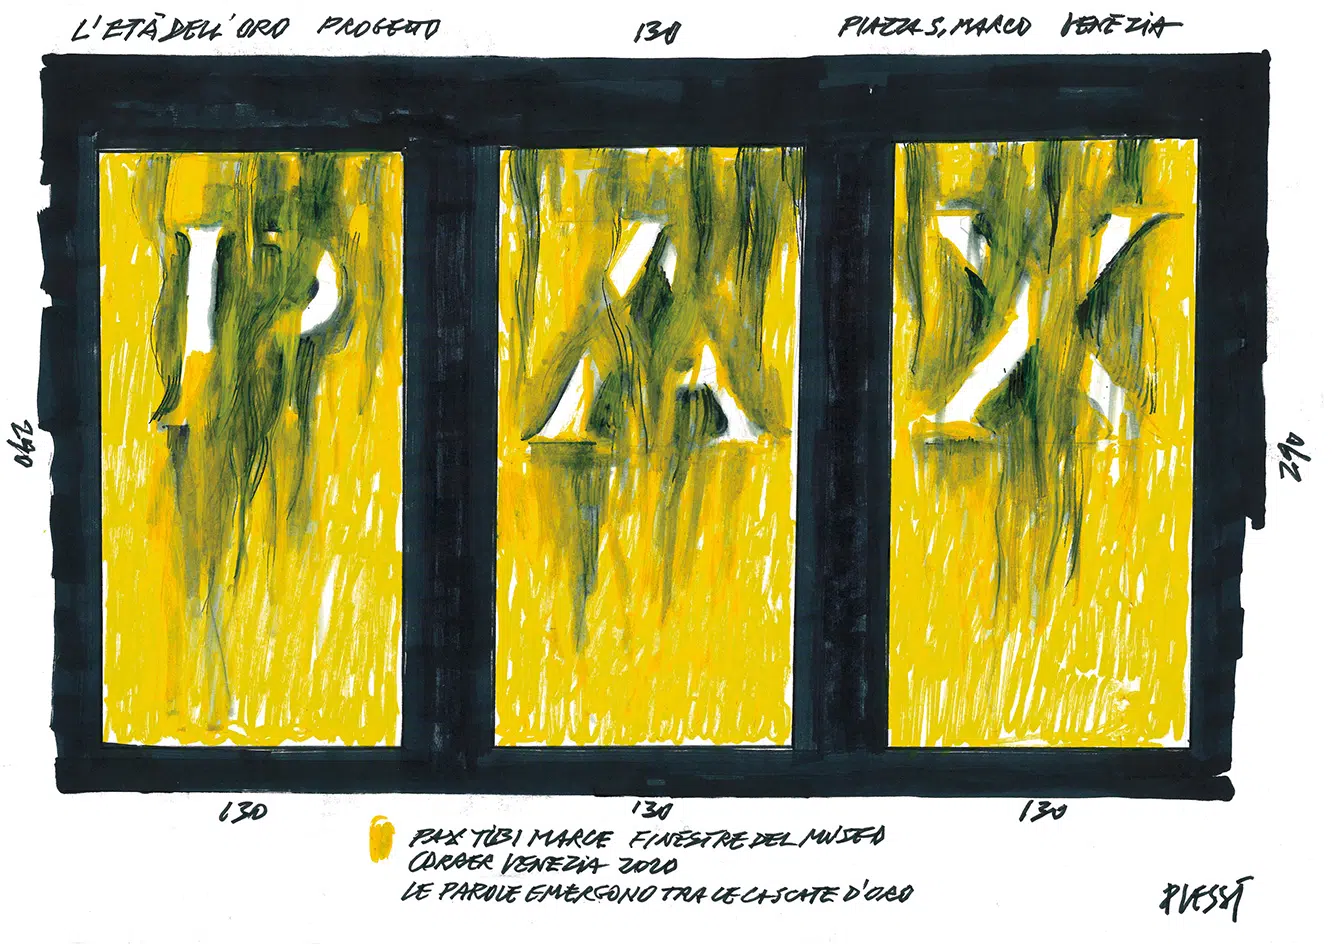 L'ETÀ DELL'ORO PROGETTO
130
PIAZZA S. MARCO VENEZIA
290
PAX
290
130
130
130
PAX TIBI MARCE FINESTRE DEL MUSEO
CORRER VENEZIA 2020
LE PAROLE EMERGONO TRA LE CASCATE D'ORO
PLESSI